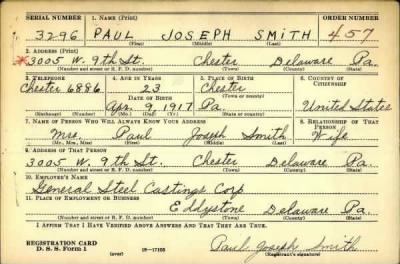 SERIAL NUMBER 1. NAME (Print) ORDER NUMBER
3296 PAUL JOSEPH SMITH 457
(First) (Middle) (Last)
2. ADDRESS (Print)
*3005 W. 9th St. Chester Delaware Pa.
(Number and street or R. F. D. number) (Town) (County) (State)
3. TELEPHONE 4. AGE IN YEARS 5. PLACE OF BIRTH 6. COUNTRY OF CITIZENSHIP
Chester 6886 23 Chester
(Town or county)
DATE OF BIRTH
Apr. 9, 1917 Pa. United States
(Exchange) (Number) (Mo.) (Day) (Yr.) (State or country)
7. NAME OF PERSON WHO WILL ALWAYS KNOW YOUR ADDRESS 8. RELATIONSHIP OF THAT PERSON
Mrs. Paul Joseph Smith Wife
(Mr., Mrs., Miss) (First) (Middle) (Last)
9. ADDRESS OF THAT PERSON
3005 W. 9th St. Chester Delaware Pa.
(Number and street or R. F. D. number) (Town) (County) (State)
10. EMPLOYER'S NAME
General Steel Castings Corp
11. PLACE OF EMPLOYMENT OR BUSINESS
Eddystone Delaware Pa.
(Number and street or R. F. D. number) (Town) (County) (State)
I AFFIRM THAT I HAVE VERIFIED ABOVE ANSWERS AND THAT THEY ARE TRUE.
REGISTRATION CARD
D. S. S. Form 1 (over) 16—17105 Paul Joseph Smith
(Registrant's signature)